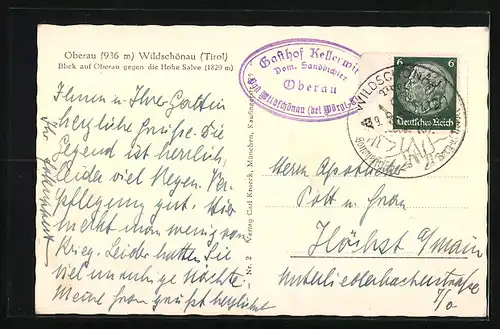 Oberau (936 m) Wildschönau (Tirol)
Blick auf Oberau gegen die Hohe Salve (1829 m)
Ihnen u Ihrer Gattin
herzliche Grüsse. Die
Gegend ist herrlich,
leider viel Regen. Ver-
pflegung gut. Hier
merkt man wenig vom
Krieg. Leider hatten Sie
viel unruhige Nächte
Meine Frau grüßt herzlichst
Ihr
Nr. 2 Verlag Carl Krueck, München, Kaufinger
Gasthof Kellerwirt
Dom. Sandbichler
Oberau
Wildschönau (bei Wörgl)
WILDSCHÖNAU
6 6
Deutsches Reich
Herrn Apotheker
Pött u Frau
Höchst a/Main
Unterliederbacherstraße